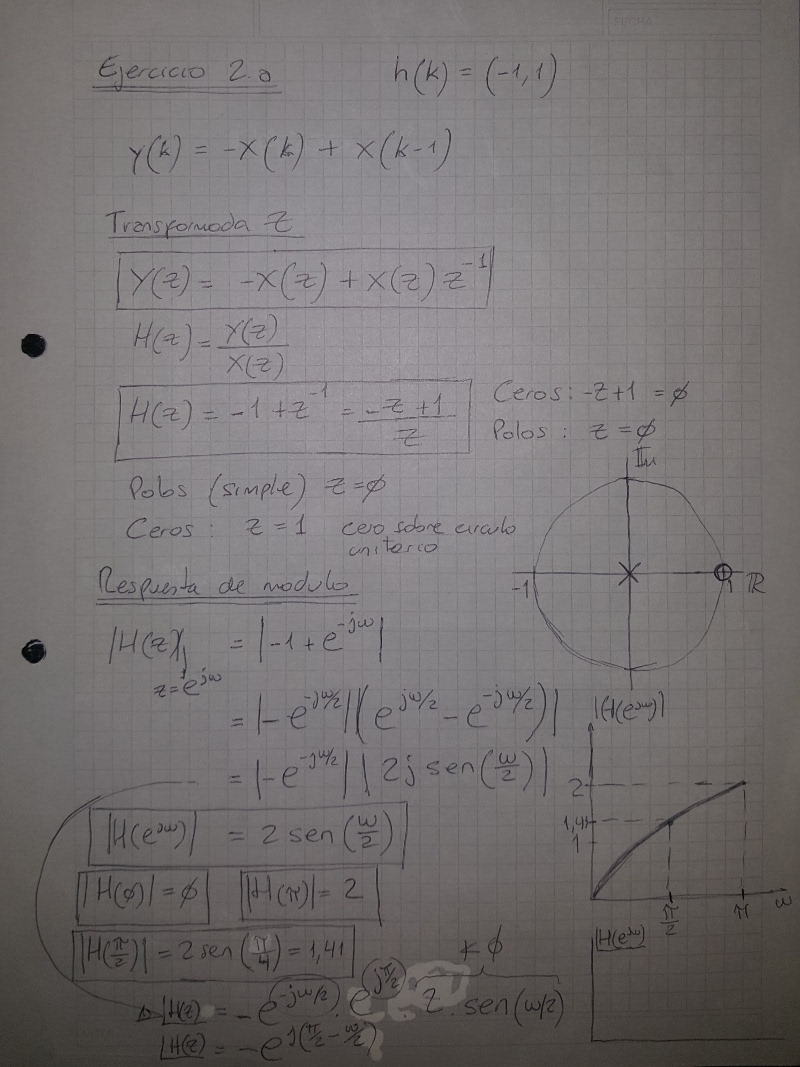 FECHA
Ejercicio 2.a h(k) = (-1,1)
y(k) = -x(k) + x(k-1)
Transformada Z
Y(z) = -X(z) + X(z) z⁻¹
H(z) = Y(z)/X(z)
H(z) = -1 + z⁻¹ = (-z+1)/z
Ceros: -z+1 = ϕ
Polos: z = ϕ
Polos (simple) z = ϕ
Ceros: z = 1 cero sobre circulo
unitario
Im
-1 1 ℝ
Respuesta de modulo
|H(z)| = |-1 + e^(-jω)|
z = e^(jω)
= |-e^(-jω/2)| |(e^(jω/2) - e^(-jω/2))|
= |-e^(-jω/2)| | 2j sen(ω/2) |
|H(e^(jω))| = 2 sen(ω/2)
|H(ϕ)| = ϕ |H(π)| = 2
|H(π/2)| = 2 sen(π/4) = 1,41
|H(e^(jω))|
2
1,41
1
π/2 π ω
≮ ϕ
|H(z) = -e^(-jω/2) · e^(jπ/2) 2 · sen(ω/2)
|H(z) = -e^(j(π/2 - ω/2))
|H(e^(jω))